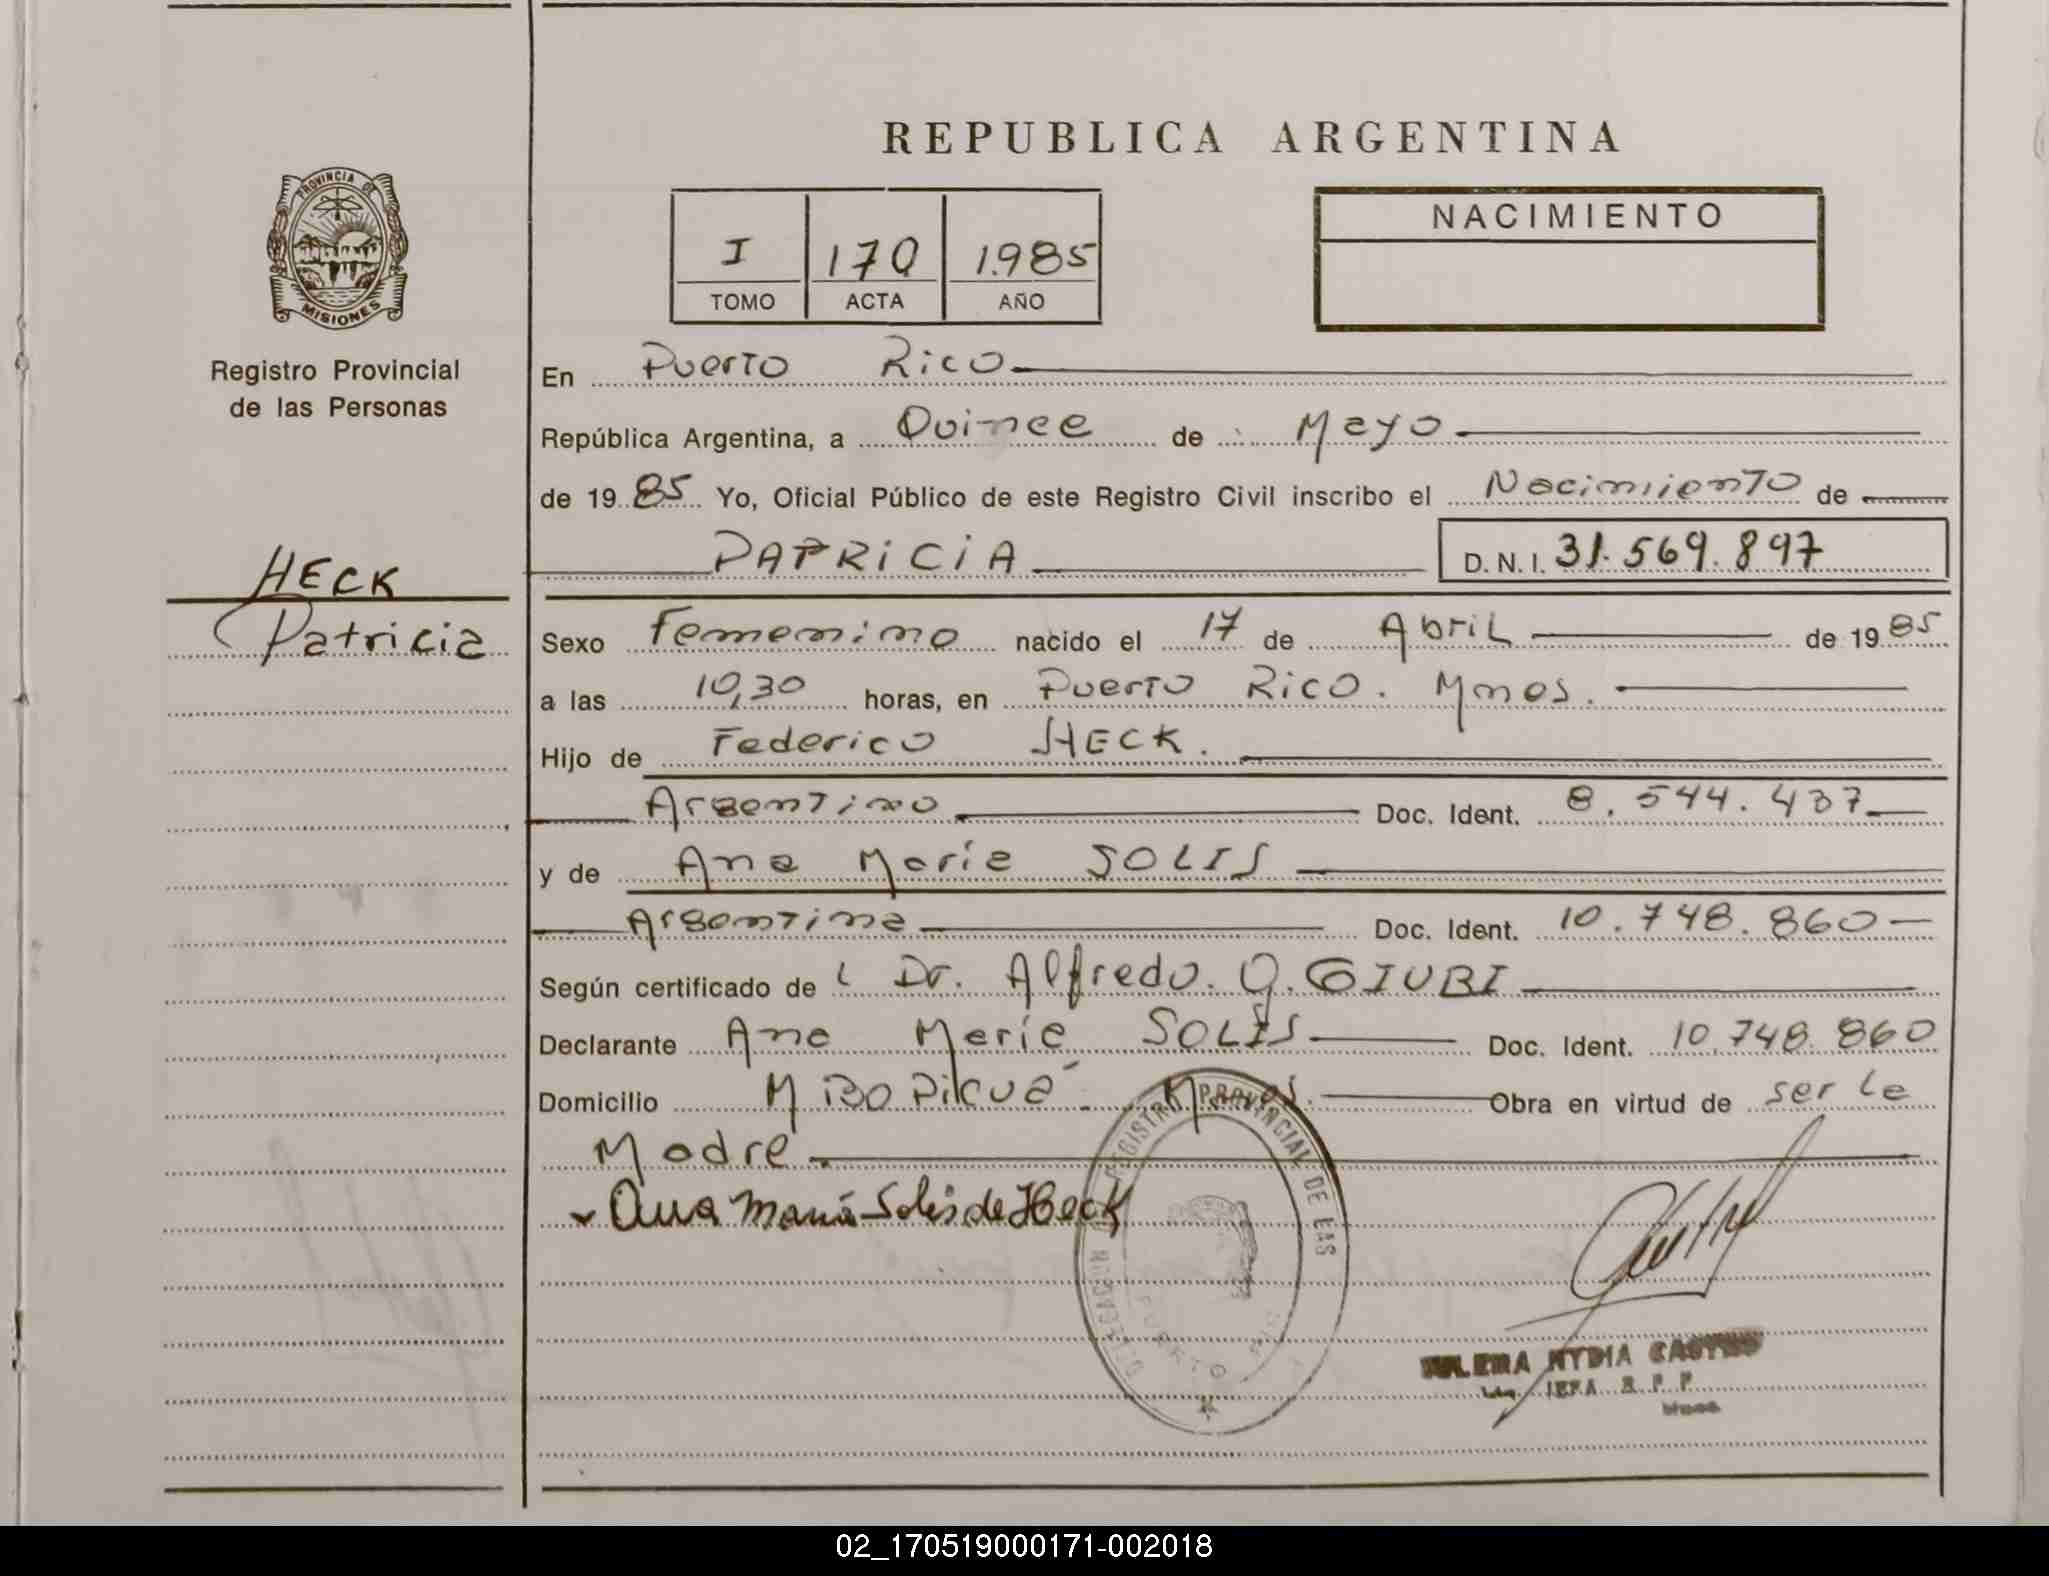 REPUBLICA ARGENTINA
PROVINCIA DE
MISIONES
Registro Provincial
de las Personas
HECK
Patricia
I 170 1.985
TOMO ACTA AÑO
NACIMIENTO
En Puerto Rico
República Argentina, a Quince de Mayo
de 19 85 Yo, Oficial Público de este Registro Civil inscribo el Nacimiento de
PATRICIA D. N. I. 31.569.897
Sexo Femenino nacido el 17 de Abril de 19 85
a las 10,30 horas, en Puerto Rico. Mnes.
Hijo de Federico HECK.
Argentino Doc. Ident. 8.544.437
y de Ana María SOLIS
Argentina Doc. Ident. 10.748.860
Según certificado de Dr. Alfredo. O. GIUBI
Declarante Ana María SOLIS Doc. Ident. 10.748.860
Domicilio Mbopicuá. Mnes. Obra en virtud de ser la
Madre.
Ana María Solis de Heck
DELEGACION REGISTRO PROVINCIAL DE LAS
PUERTO RICO
NYDIA CASTRO
R. P. P.
02_170519000171-002018